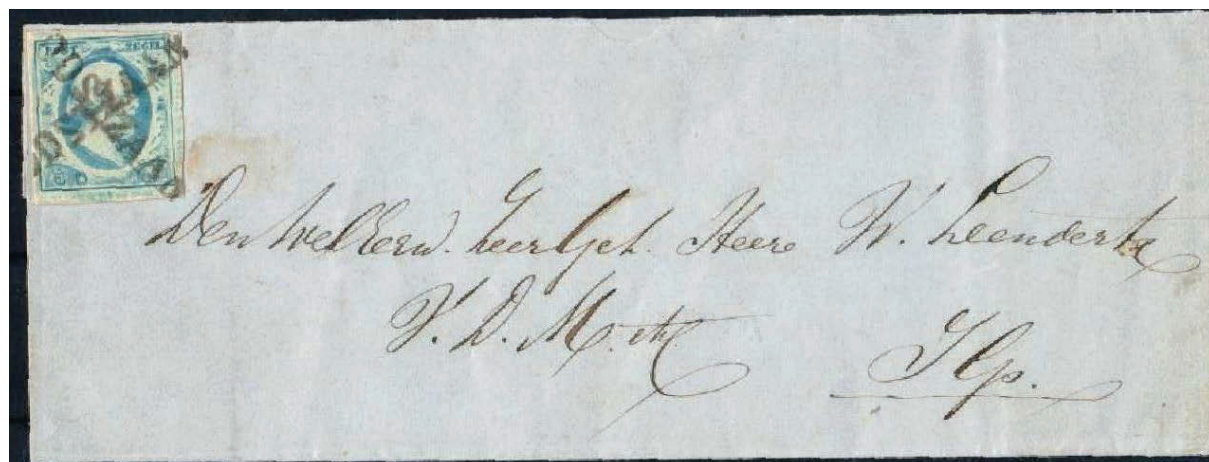 ZEGEL
Den WelEerw. ZeerGel. Heere W. Leendertz
V. D. M. etc
Ilp.